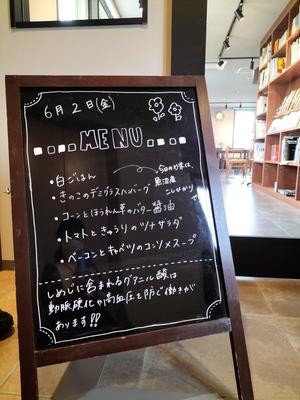 6月2日(金)
MENU
・白ごはん
今日のお米は、
魚沼産
こしひかり
・きのこのデミグラスハンバーグ
・コーンとほうれん草のバター醤油
・トマトときゅうりのツナサラダ
・ベーコンとキャベツのコンソメスープ
しめじに含まれるグアニル酸は
動脈硬化や高血圧を防ぐ働きが
あります!!